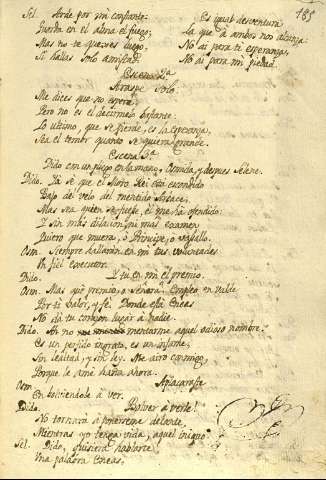 185
Sel. Arde por mi constante:
Guarda en el alma el fuego,
Mas no te quexes luego,
Si hallas solo amistad.
Es igual desventura
La que à ambos nos alcanza:
No ai para ti esperanza,
No ai para mi piedad.
Escena 2ª
Araspe solo.
Me dices que no espere,
Pero no es el decirmelo bastante.
Lo ultimo, que se pierde, es la esperanza,
Sea el temor quanto se quiera grande.
Escena 3ª
Dido con un pliego en la mano, Osmida, y despues Selene.
Dido. Yà se que el Moro Rei està escondido
Bajo de velo del mentido Arbace,
Mas sea quien se fuese, èl me ha ofendido:
Y sin mas dilacion, ni mas examen
Quiero que muera, ò Principe, ò vasallo.
Osm. Siempre hallaràn en mi tus voluntades
Un fiel executor.
Dido. Y tu en mi el premio.
Osm. Mas què premio, o Señora? Empleo en valde
Por ti valor, y fè. Donde està Eneas
No dà tu corazon lugar à nadie.
Dido. Ah no mentarme aquel odioso nombre.
Es un perfido ingrato, es un infame,
Sin lealtad, y sin ley. Me airo conmigo,
Porque le amè hasta ahora.
Osm. Aplacaraste
En bolviendole à ver.
Dido. Bolver à verle!
No tornarà à ponerseme delante,
Mientras yo tenga vida, aquel iniquo.
Sel. Dido, quisiera hablarte
Una palabra Eneas.